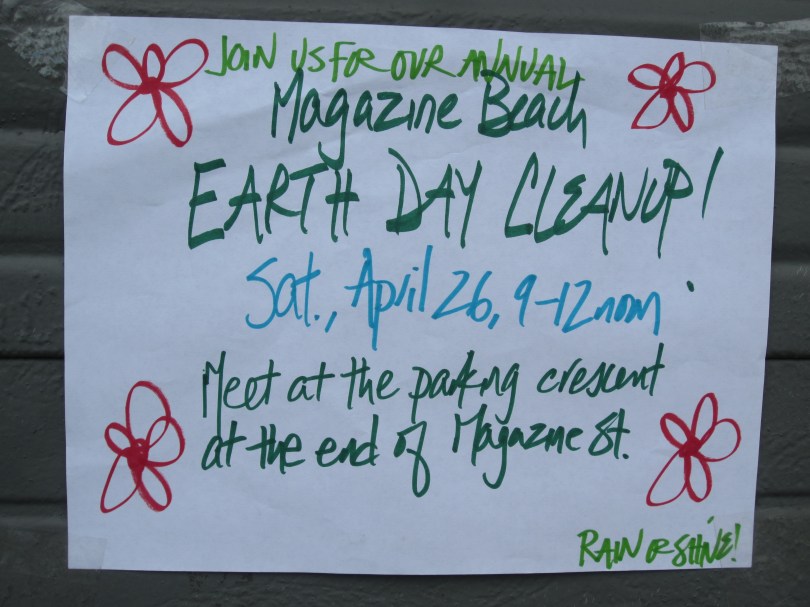 JOIN US FOR OUR ANNUAL
Magazine Beach
EARTH DAY CLEANUP!
Sat., April 26, 9-12 noon
Meet at the parking crescent
at the end of Magazine St.
RAIN OR SHINE!